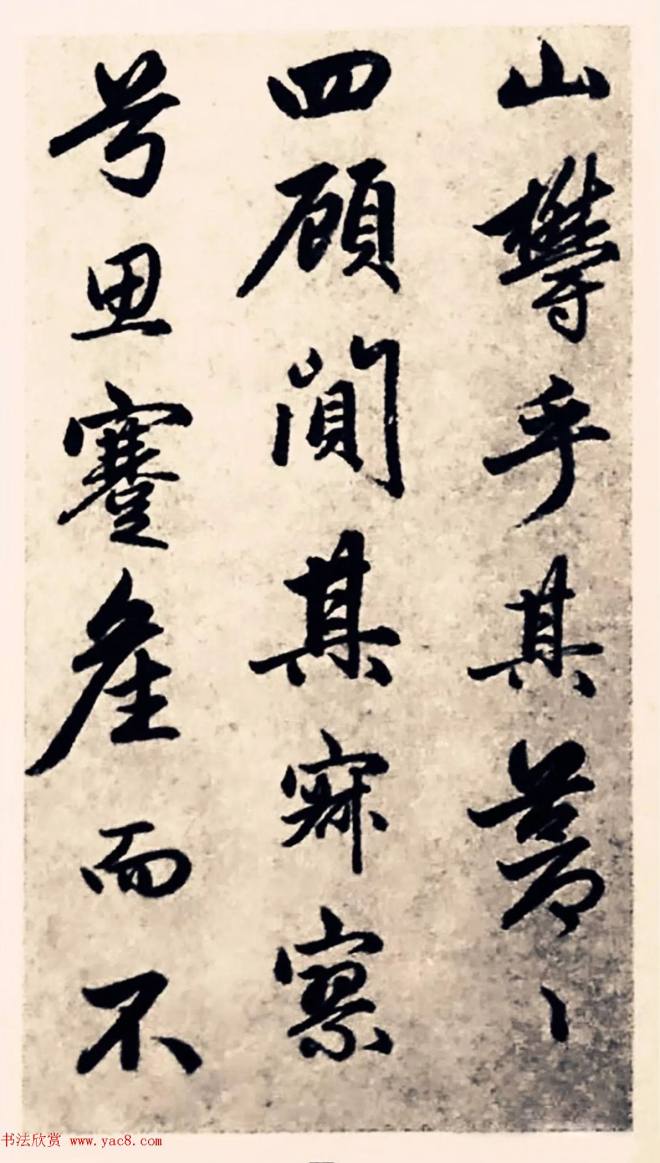 山欝乎其蒼〻
四顧闃其寂寥
兮思蹇産而不
书法欣赏 www.yac8.com